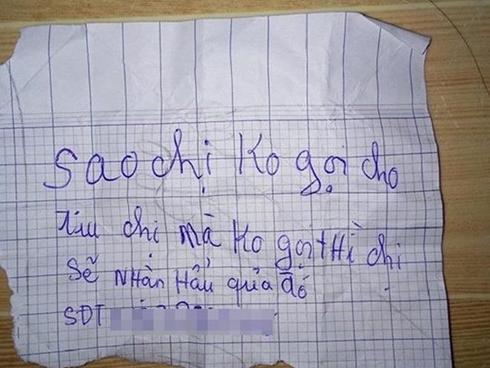 Sao chị Ko gọi cho
chị mà Ko gọi tHì chị
Sẽ NHÂN HẬU qủa đó
SĐT